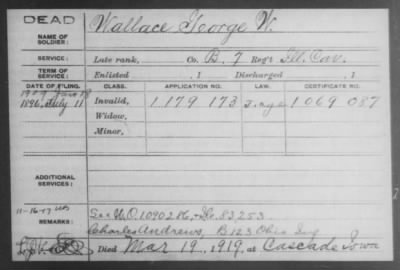 DEAD
NAME OF SOLDIER: Wallace George W.
SERVICE: Late rank, Co. B. 7 Reg't Ill. Cav.
TERM OF SERVICE: Enlisted , 1 Discharged , 1
DATE OF FILING. CLASS. APPLICATION NO. LAW. CERTIFICATE NO.
1896, July 11 Invalid, 1 179 173 1 069 087
Widow,
Minor,
ADDITIONAL SERVICES:
REMARKS: See W.O. 1090286, 83253
Charles Andrews, B 123 Ohio Inf
Died Mar 19, 1919, at Cascade Iowa